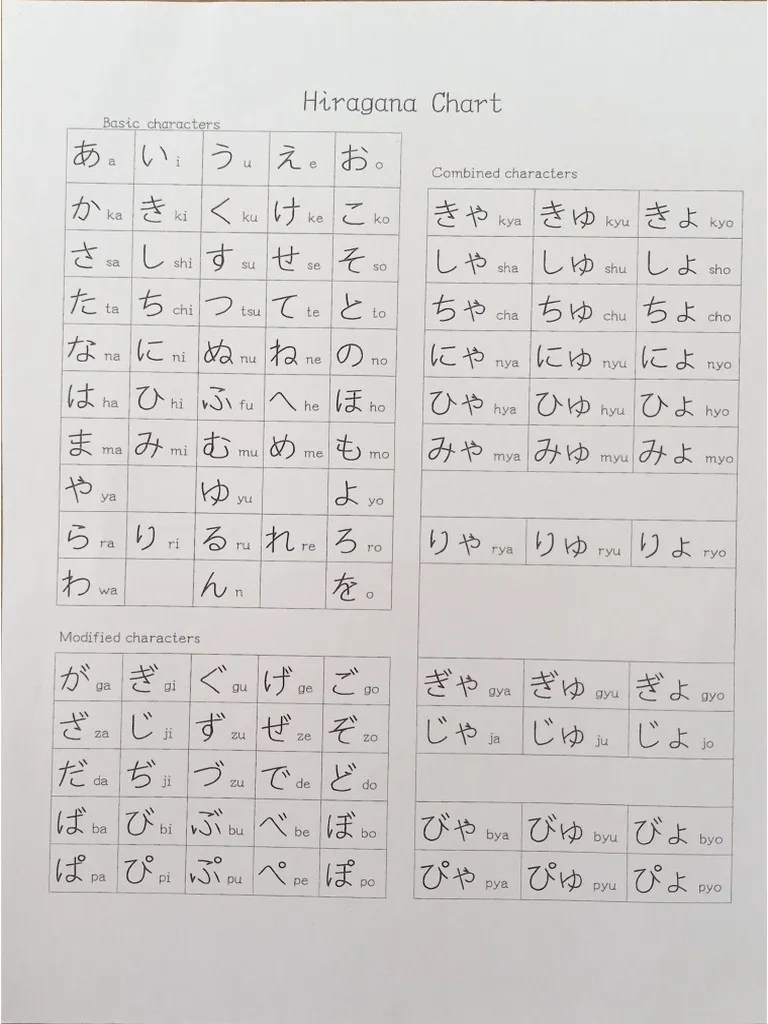 Hiragana Chart
Basic characters
あ a い i う u え e お o
か ka き ki く ku け ke こ ko
さ sa し shi す su せ se そ so
た ta ち chi つ tsu て te と to
な na に ni ぬ nu ね ne の no
は ha ひ hi ふ fu へ he ほ ho
ま ma み mi む mu め me も mo
や ya ゆ yu よ yo
ら ra り ri る ru れ re ろ ro
わ wa ん n を o
Modified characters
が ga ぎ gi ぐ gu げ ge ご go
ざ za じ ji ず zu ぜ ze ぞ zo
だ da ぢ ji づ zu で de ど do
ば ba び bi ぶ bu べ be ぼ bo
ぱ pa ぴ pi ぷ pu ぺ pe ぽ po
Combined characters
きゃ kya きゅ kyu きょ kyo
しゃ sha しゅ shu しょ sho
ちゃ cha ちゅ chu ちょ cho
にゃ nya にゅ nyu にょ nyo
ひゃ hya ひゅ hyu ひょ hyo
みゃ mya みゅ myu みょ myo
りゃ rya りゅ ryu りょ ryo
ぎゃ gya ぎゅ gyu ぎょ gyo
じゃ ja じゅ ju じょ jo
びゃ bya びゅ byu びょ byo
ぴゃ pya ぴゅ pyu ぴょ pyo